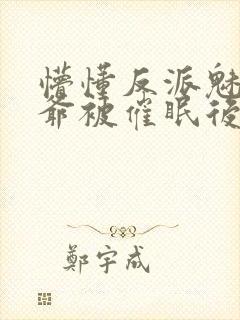 懵懂反派魅
爺被催眠後
鄭宇成